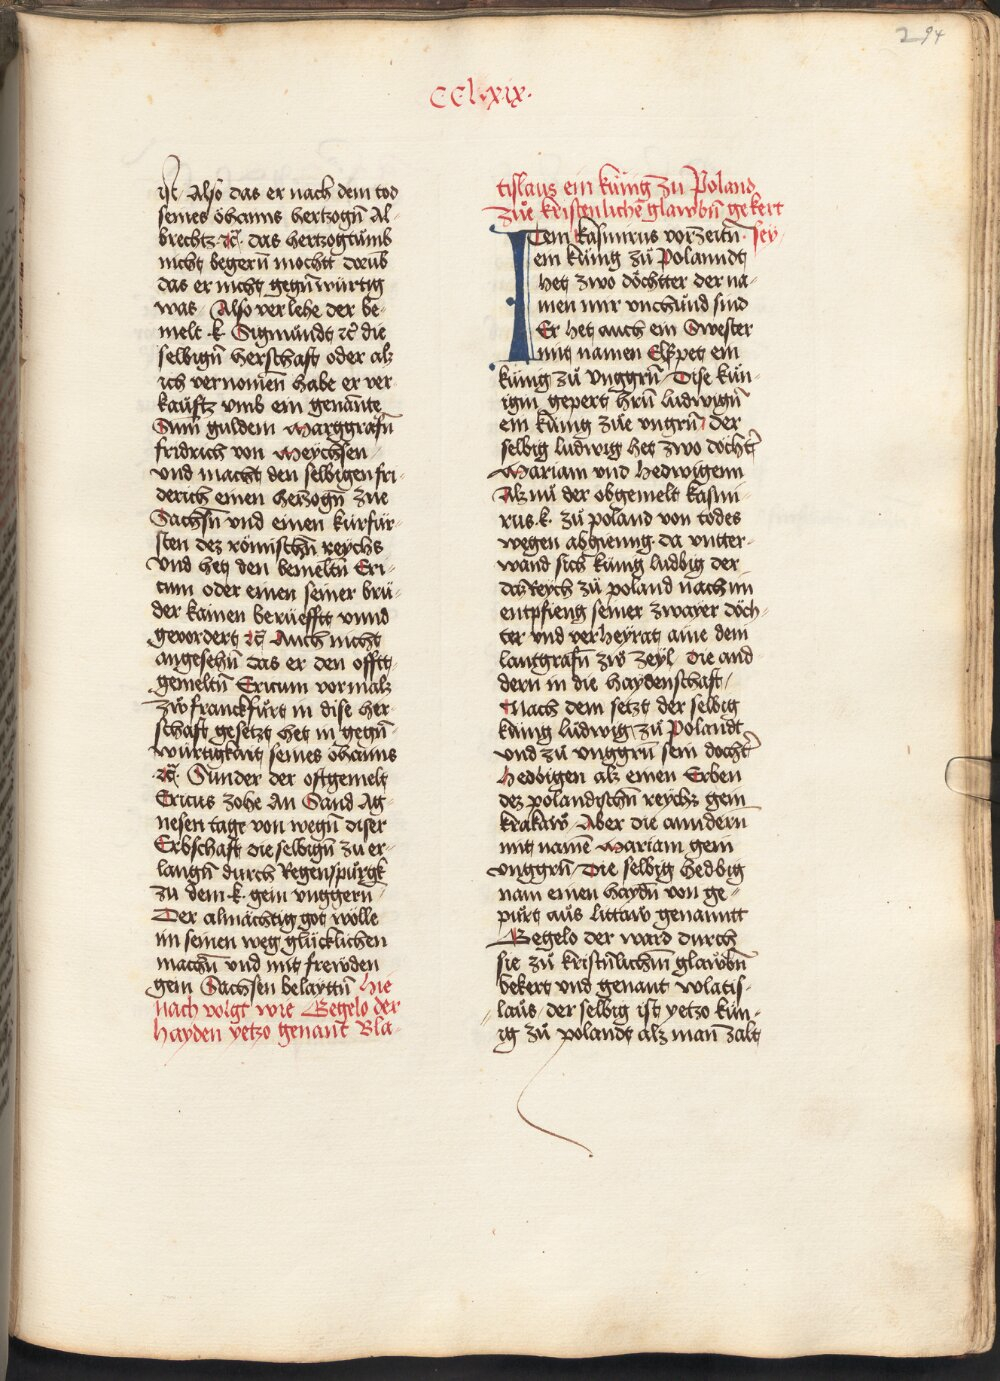 294
CCLxix.
ist Also das er nach dem tod
seines öhanns hertzogn̄ Al-
brechtz ⁊c̄. das hertzogtůmb
nicht begern̄ mocht dorūb
das er nicht gegn̄würtig
was. Also verlehe der be-
melt .k. Sigmundt ⁊c̄ die
selbign̄ herschaft oder alz
ich vernomen̄ habe er ver-
kauftz vmb ein genante
Sum̄ guldein Marggrafn̄
fridrich von Meychsen
vnd macht den selbigen fri-
derich einen herzogn̄ zue
Sachsn̄ vnd einen kurfür-
sten dez römischn̄ reychs
vnd het den bemeltn̄ Eri-
cum oder einen seiner brü-
der kainen berüefftt vnnd
gevordert ⁊c̄ Auch nicht
angesehn̄ das er den offtt-
gemeltn̄ Ericum vormalz
zẘ franckfůrt in dise her-
schaft gesetzt het in gegn̄-
würtigkait seines öhanns
⁊c̄. Sunder der oftgemelt
Ericus zohe An Sand Ag-
nesen tage von wegn̄ diser
Erbschaft die selbign̄ zu er-
langn̄ durch Regenspůrgk
zu dem .k. gein vnggern̄
Der almächtig got wölle
im seinen weg glücklichen
machn̄ vnd mit frewden
gein Sachsen belayttn̄ hie
nach volgt wie Begelo der
hayden yetzo genant Bla-
tislaus ein küing zu Poland
zůe kristenlichē glawbn̄ gekert
Item kasimirus vorzeitn̄ . sey
ein küing zů Polanndt
het zwo döchtter der na-
men mir vnchund sind
Er het auch ein Swester
mit namen Elspet ein
küing zů vnggrn̄ Dise kün-
igin gepert hrn̄ ludwign̄
ein küing zůe vngrn̄ der
selbig ludwig het zwo dochtr̄
Mariam vnd hedwigenn
Alz nů der obgemelt kasmi-
rus .k. zů poland von todes
wegen abgienng. da vntter-
wand sich küing ludbig der
dez Reych zů poland nach im
entpfieng seiner zwayer döch-
ter vnd verheyrat aine dem
lantgrafn̄ zẘ zeyl. die and
dern in die haydenschaft
Nach dem setzt der selbig
küing ludwig zů Polandt
vnd zů vnggrn̄ sein dochtr̄
hedbigen alz einen Erben
dez polandischn̄ reychs gein
krakaẘ. Aber die anndern̄
mit namē Mariam gein
vnggrn̄ Die selbig hedbig
nam einen haydn̄ von ge-
půrt aůs littaw genanntt
Begelo der ward durch
sie zů kristn̄lichm̄ glawbn̄
bekert vnd genant wlatis-
laůs. der selbig ist yetzo kün-
ig zů polandt alz man̄ zalt